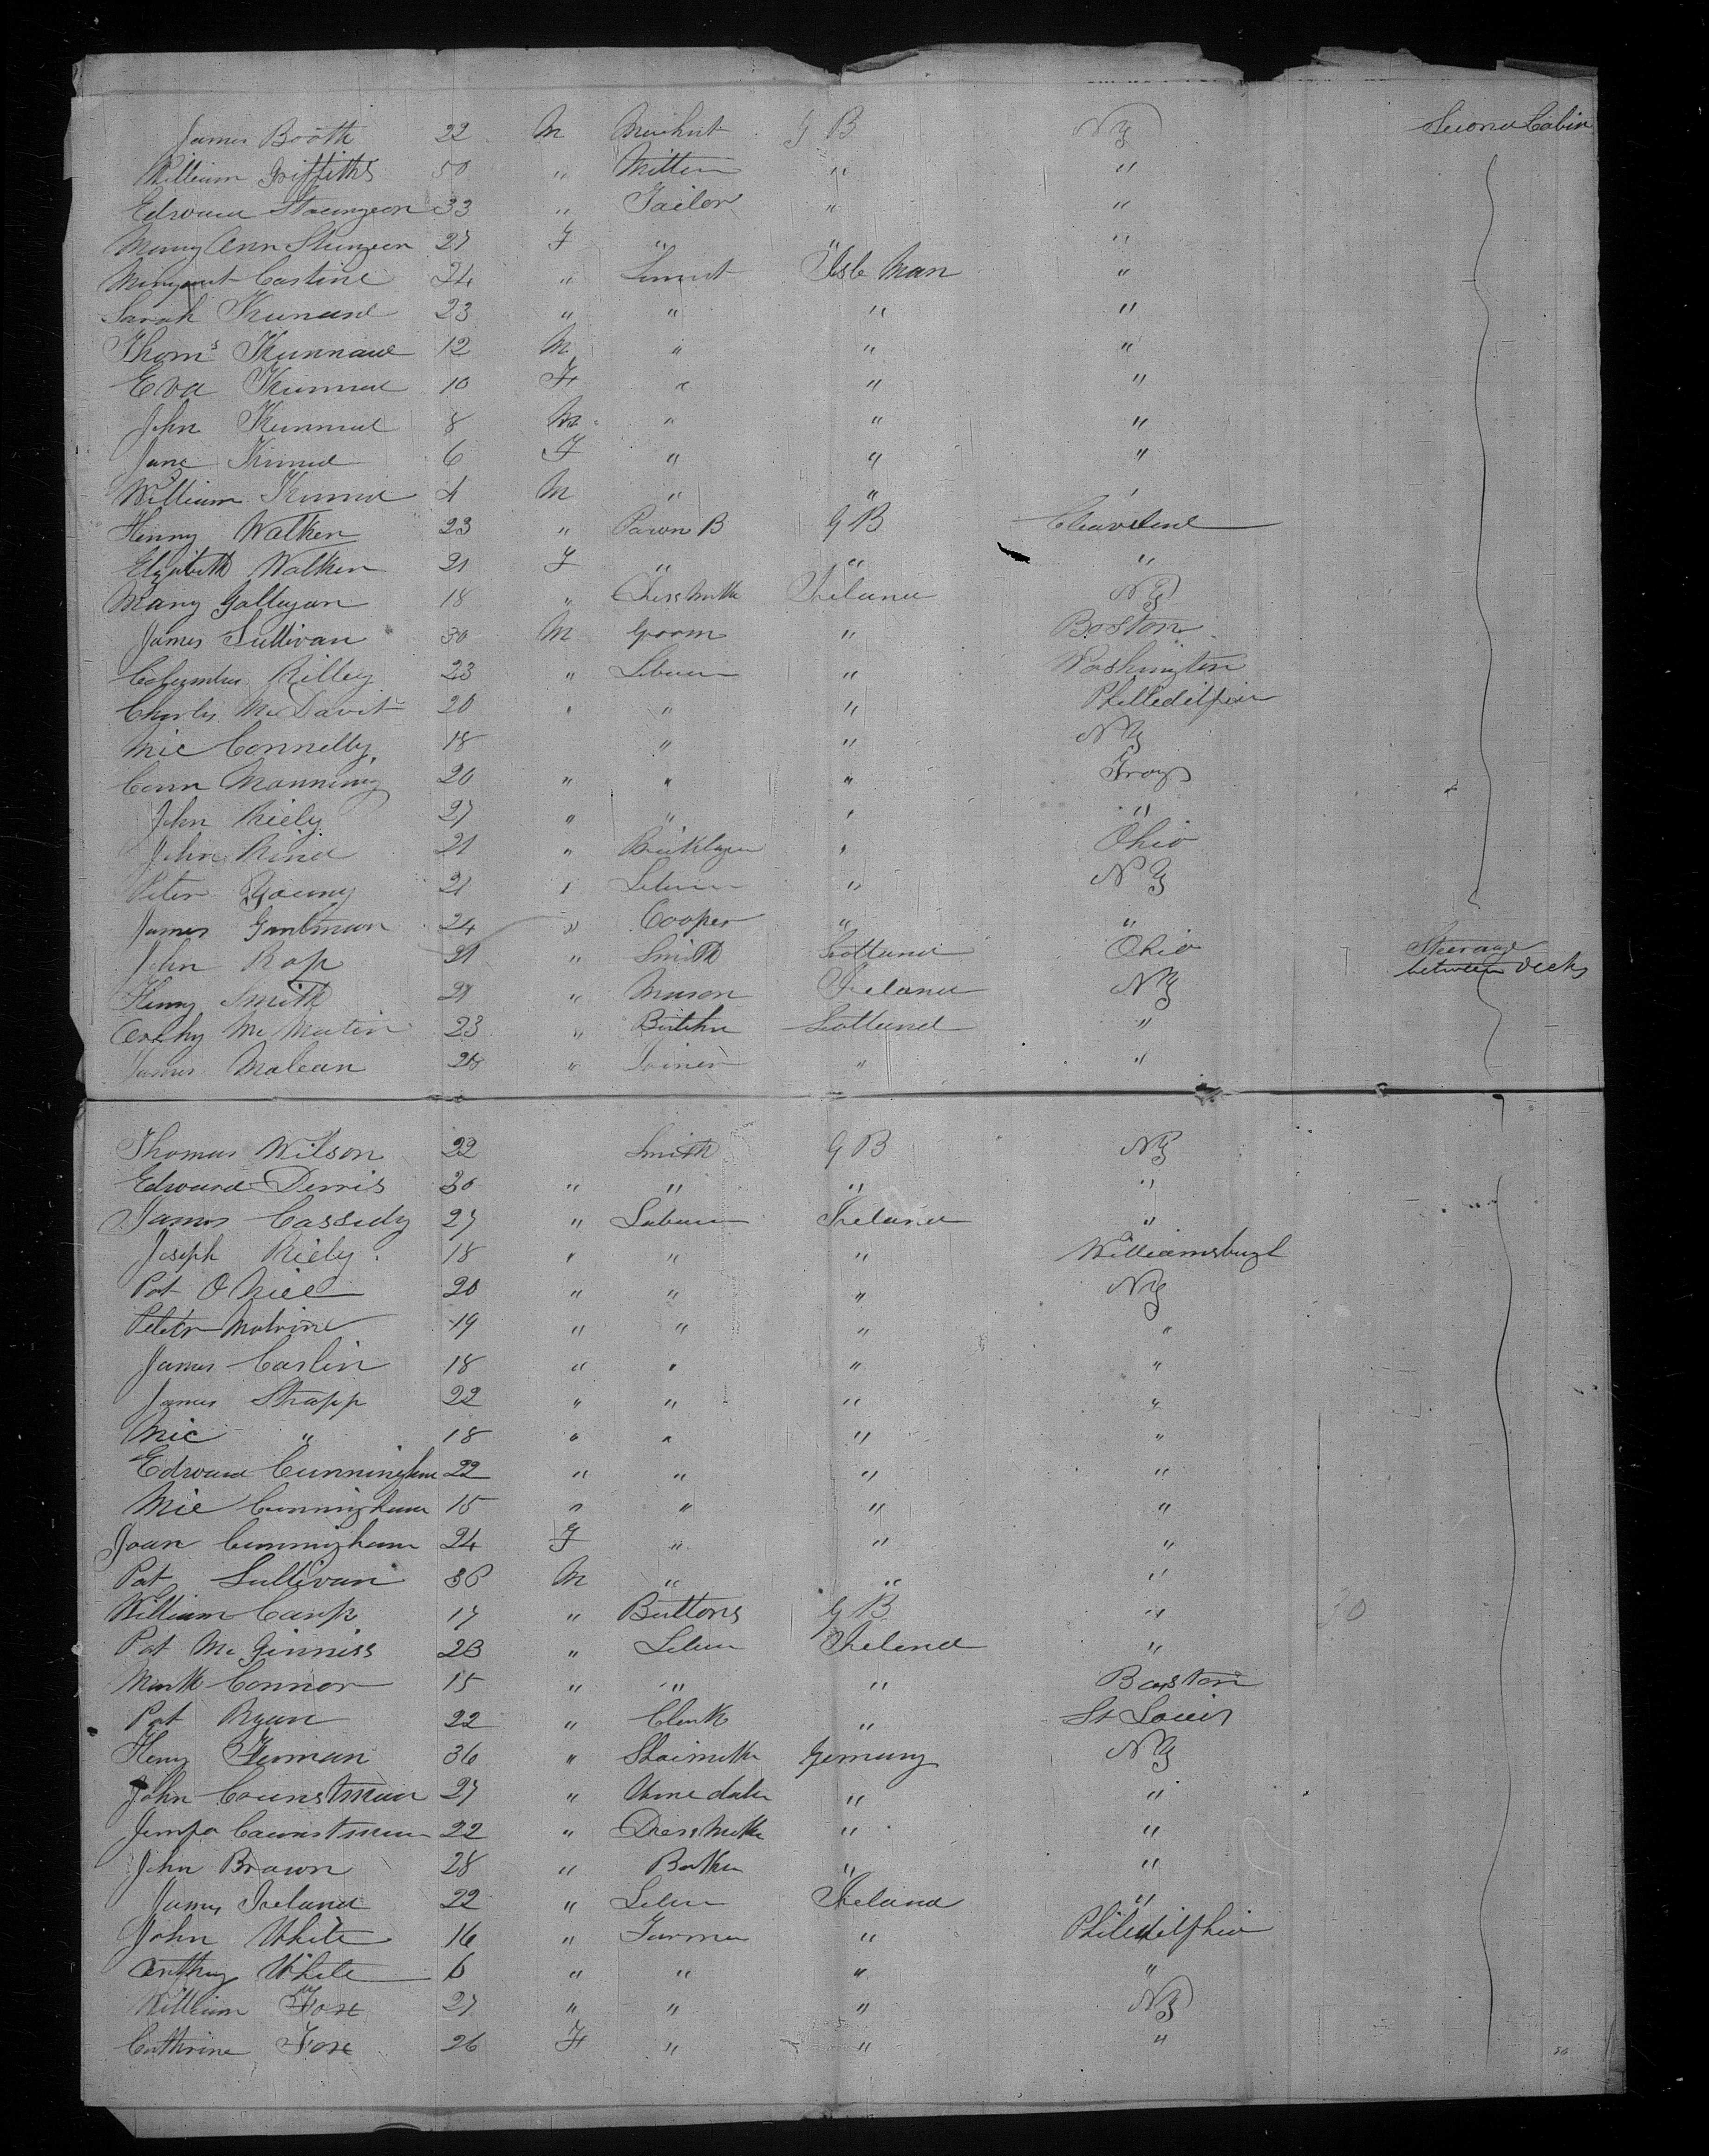 James Booth 22 M Merchnt G B NY Second Cabin
William Griffiths 50 " " "
Edward Staungeon 33 " Tailor " "
Mary Ann Stungeon 27 F " " "
Margaret Castine 24 " Isle Man "
Sarah 23 " " " "
Thoms Kunnaul 12 M " " "
Eva 10 F " " "
John 8 M " " "
Jane 6 F " " "
William 4 M " " "
Henny Walken 23 " G B Cleaveland
Elizabeth Walken 21 F " " "
Mary Gallegan 18 " Dressmake Ireland NY
James Sullivan 30 M Groom " Boston
Columbus Rilley 23 " Labour " Washington
Charles McDavit 20 " " " Philledelphia
Mic Connelly 18 " " NY
Conn Manning 20 " " " Troy
John Riely 27 " " " "
John 21 " Bricklayer " Ohio
Peter Young 21 " Labour " NY
James 24 " Cooper " "
John Rop 21 " Smith Scotland Ohio Steerage
between Decks
Henry Smith 29 " Mason Ireland NY
Archy Mc Martin 23 " Butcher Scotland "
James Malean 28 " Joiner " "
Thomas Wilson 22 Smith G B NY
Edward Derris 30 " " " "
James Cassidy 27 " Labour Ireland "
Joseph Riely 18 " " " Williamsbugh
Pat O Niel 20 " " " NY
Peter 19 " " " "
James Carlin 18 " " " "
James Strapp 22 " " " "
Mic " 18 " " " "
Edward Cunningham 22 " " " "
Mic Cunningham 15 " " " "
Joan Cunningham 24 F " " "
Pat Sullivan 36 M " " "
William Carp 17 " Buttons G B " 30
Pat McGinniss 23 " Labour Ireland "
Mark Connor 15 " " " Boston
Pat Ryan 22 " Clerk " St Louis
Heny 36 " Germany NY
John Counstman 27 " " "
22 " Dressmake " "
John Brown 28 " Baker " "
James Ireland 22 " Labour Ireland "
John White 16 " Farmer " Philidelphia
Anthny White 6 " " " "
William Fox 27 " " " NY
Cathrine Fox 26 F " " "